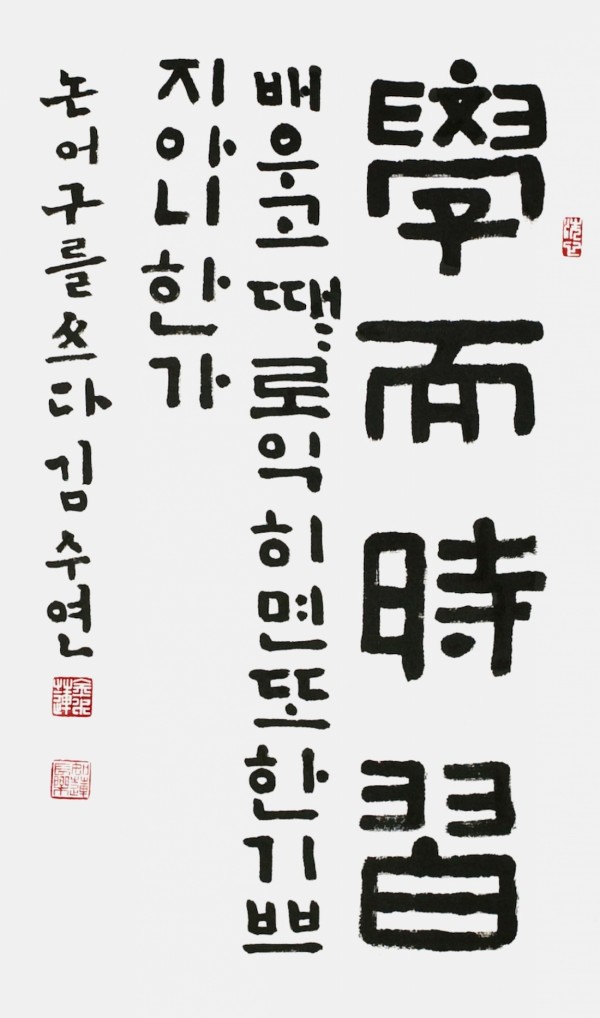 學而時習
배우고때:로익히면또한기쁘
지아니한가
논어구를쓰다김수연
金水蓮